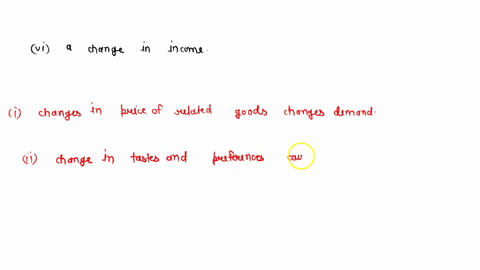 (vi) a change in income.
(i) changes in price of related goods changes demand.
(ii) change in tastes and preferences cau